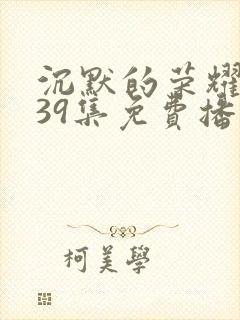 沉默的荣耀
39集免費播
柯美學